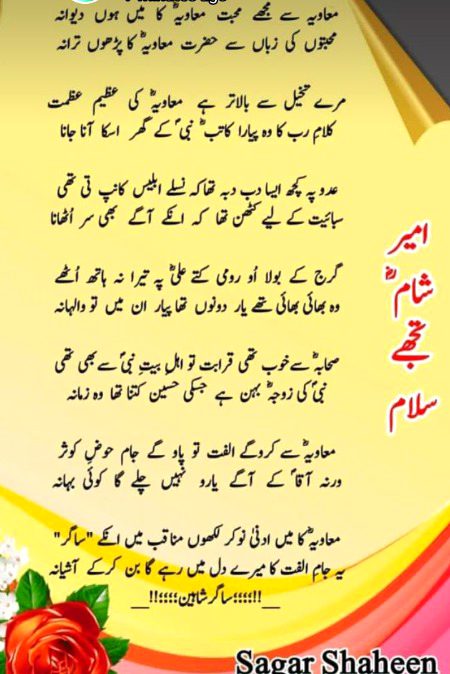 معاویہؓ سے مجھے محبت معاویہؓ کا میں ہوں دیوانہ
محبتوں کی زباں سے حضرت معاویہؓ کا پڑھوں ترانہ
مرے تخیل سے بالاتر ہے معاویہؓ کی عظیم عظمت
کلامِ رب کا وہ پیارا کاتبؓ نبیؐ کے گھر اسکا آنا جانا
عدو پہ کچھ ایسا دب دبہ تھا کہ نسلے ابلیس کانپ تی تھی
سبائیت کے لیے کٹھن تھا کہ انکے آگے بھی سر اُٹھانا
گرج کے بولا اُو رومی کتے علیؓ پہ تیرا نہ ہاتھ اُٹھے
وہ بھائی بھائی تھے یار دونوں تھا پیار ان میں تو والہانہ
صحابہؓ سے خوب تھی قرابت تو اہلِ بیتِ نبیؐ سے بھی تھی
نبیؐ کی زوجہؓ بہن ہے جسکی حسین کتنا تھا وہ زمانہ
معاویہؓ سے کروگے الفت تو پاو گے جام حوضِ کوثر
ورنہ آقاؐ کے آگے یارو نہیں چلے گا کوئی بہانہ
معاویہؓ کا میں ادنیٰ نوکر لکھوں مناقب میں انکے "ساگر"
یہ جامِ الفت کا میرے دل میں رہے گا بن کر کے آشیانہ
__!!؛؛؛؛ساگر شاہین؛؛؛؛!!__
امیر
شامؓ
تجھے
سلام
Sagar Shaheen